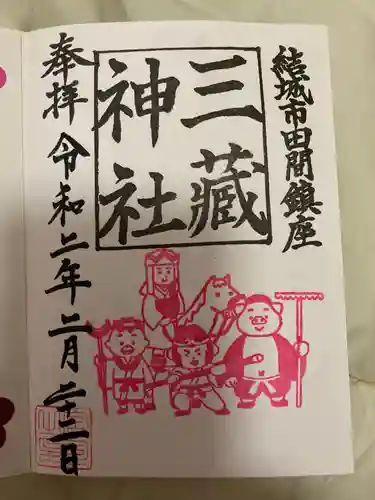 結城市田間鎮座
三蔵
神社
奉拝
令和二年二月二十二日